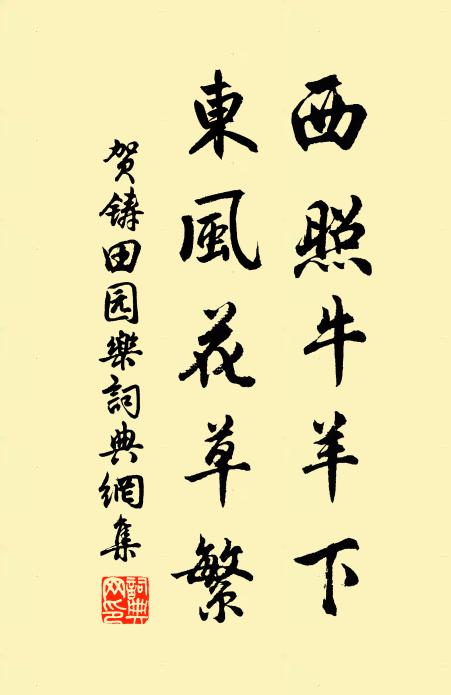 西照牛羊下
東風花草繁
贺鑄田园樂詞典網集
詞典網印